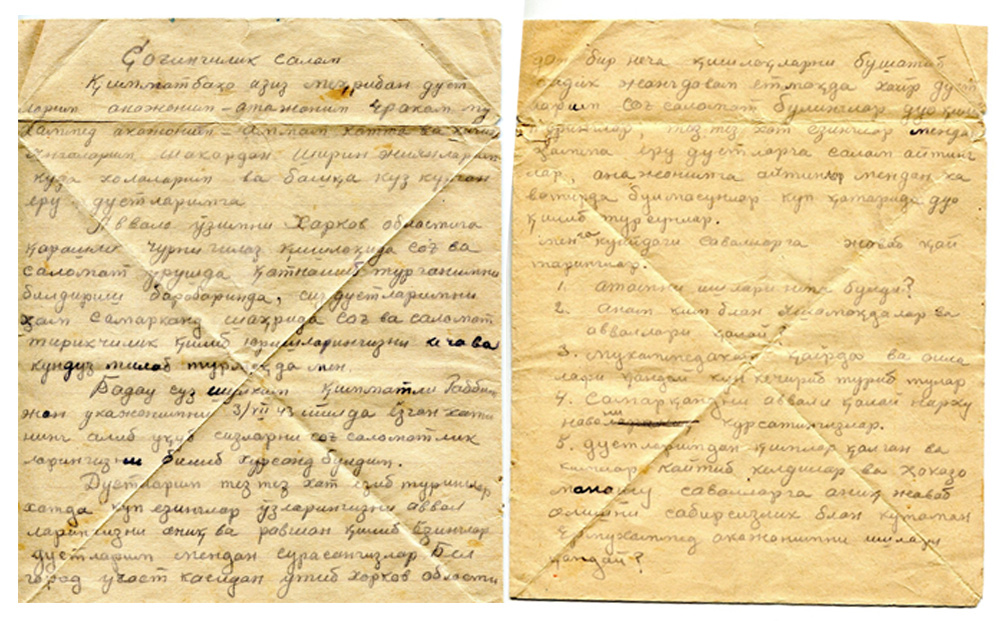 Соғинчилик салам
Қимматбаҳо азиз меҳрибан дуст
ларим анажоним - апажоним
хаммед акажоним - Аммам хатта ва
янгаларим шакардан ширин жиянларим
қуда холаларим ва башқа куз курган
ёру дустларимга
Аввало ўзимни Харков областига
қарашлик қишлоқида соғ ва
саломат урушда қатнашиб турганимни
билдириш баробаринда, сиз дустларимни
ҳам Самарканд шаҳрида соғ ва саломат
тирикчилик қилиб юришларингизни кеча ва
кундуз тилаб турмоқда мен.
Бадау суз шулким қимматли Габбин
жон укажонимни 3/VII 43 йилда ёзган хати
нинг алиб уқуб сизларни соғ саломатлик
ларингизни билиб хурсанд булдим.
Дустларим тез тез хат ёзиб турингла
хатда куп ёзинглар ўзларингизни аввал
ларингизни аниқ ва равшан қилиб ёзинглар
дустларим мендан сурасангизлар Бел
город участкасидан утиб харков области
дан бир неча қишлоқларни бушатиб
жангдовам етмоқда хайр дуст
ларим соғ саломат булинглар дуо қилиб
туринглар, тез тез хат ёзинглар менда
ҳамма ёру дустларга салам айтинг
лар, анажонимга айтинглар мендан ха
вотирда булмасунлар куп қатарида дуо
қилиб турсунлар.
менга куйидаги савалларга жаваб қай
таринглар.
1. атамни ишлари нима булди?
2. анам ким блан турмоқдалар ва
авваллари қалай?
3. мухаммедака қаерда ва оила
лари қандай кун кечириб туриб тулар
4. Самарқандни аввали қалай нарху
наволини курсатингизлар.
5. дустларимдан кимлар қалган ва
кимлар кайтиб келдилар ва ҳоказо
мана шу савалларга аниқ жаваб
алишни сабирсизлик блан кутаман
Ермухаммед акажонимни ишлари
қандай?